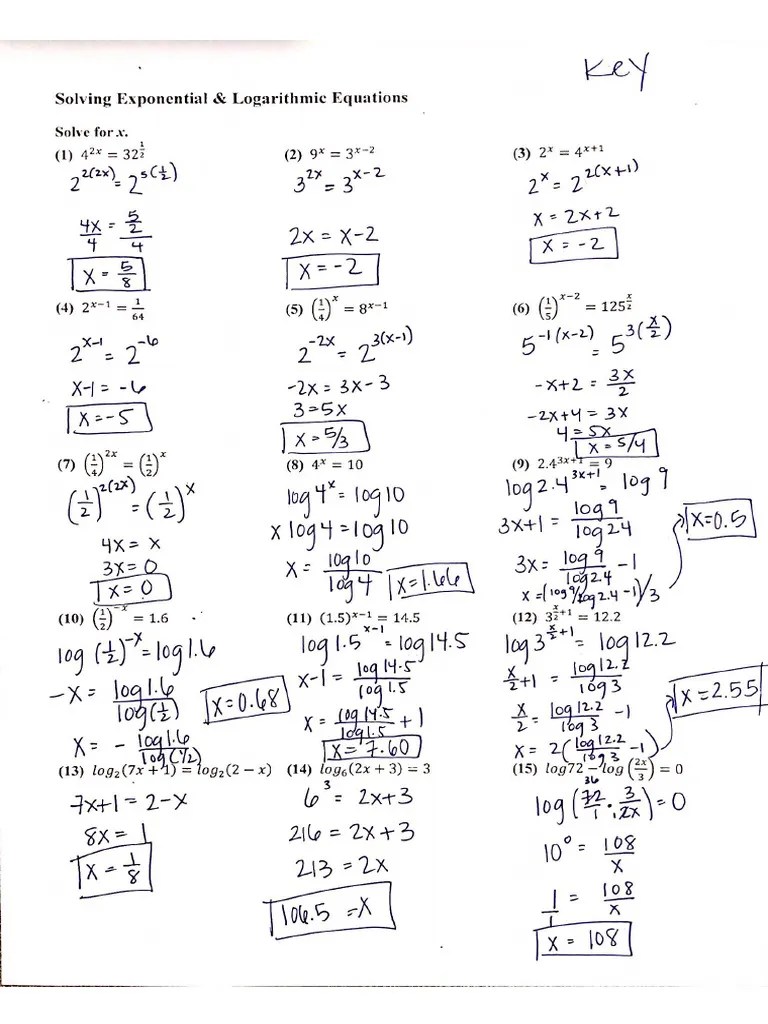 Key
Solving Exponential & Logarithmic Equations
Solve for x.
(1) 4^{2x} = 32^{1/2}
2^{2(2x)} = 2^{5(1/2)}
4x/4 = (5/2)/4
x = 5/8
(2) 9^x = 3^{x-2}
3^{2x} = 3^{x-2}
2x = x-2
x = -2
(3) 2^x = 4^{x+1}
2^x = 2^{2(x+1)}
x = 2x+2
x = -2
(4) 2^{x-1} = 1/64
2^{x-1} = 2^{-6}
x-1 = -6
x = -5
(5) (1/4)^x = 8^{x-1}
2^{-2x} = 2^{3(x-1)}
-2x = 3x-3
3 = 5x
x = 5/3
(6) (1/5)^{x-2} = 125^{x/2}
5^{-1(x-2)} = 5^{3(x/2)}
-x+2 = 3x/2
-2x+4 = 3x
4 = 5x
x = 5/4
(7) (1/4)^{2x} = (1/2)^x
(1/2)^{2(2x)} = (1/2)^x
4x = x
3x = 0
x = 0
(8) 4^x = 10
log 4^x = log 10
x log 4 = log 10
x = log 10/log 4
x = 1.66
(9) 2.4^{3x+1} = 9
log 2.4^{3x+1} = log 9
3x+1 = log 9/log 2.4
3x = log 9/log 2.4 - 1
x = (log 9/log 2.4 - 1)/3
x = 0.5
(10) (1/2)^{-x} = 1.6
log (1/2)^{-x} = log 1.6
-x = log 1.6/log(1/2)
x = - log 1.6/log(1/2)
x = 0.68
(11) (1.5)^{x-1} = 14.5
log 1.5^{x-1} = log 14.5
x-1 = log 14.5/log 1.5
x = log 14.5/log 1.5 + 1
x = 7.60
(12) 3^{x/2+1} = 12.2
log 3^{x/2+1} = log 12.2
x/2+1 = log 12.2/log 3
x/2 = log 12.2/log 3 - 1
x = 2(log 12.2/log 3 - 1)
x = 2.55
(13) log_2(7x + 1) = log_2(2 - x)
7x+1 = 2-x
8x = 1
x = 1/8
(14) log_6(2x + 3) = 3
6^3 = 2x+3
216 = 2x+3
213 = 2x
106.5 = x
(15) log72 - log (2x/3) = 0
36
log (72/1 · 3/2x) = 0
10^0 = 108/x
1/1 = 108/x
x = 108